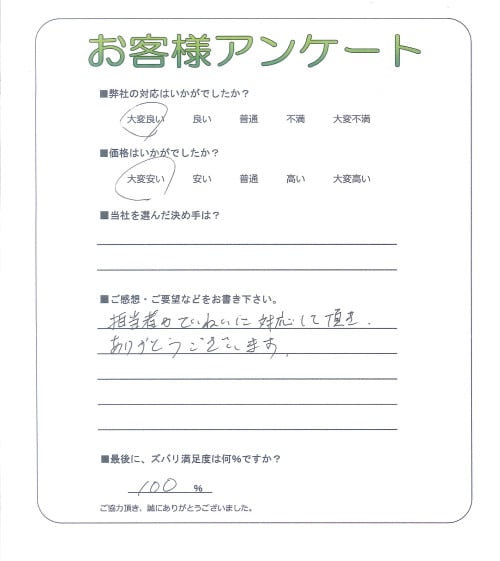 お客様アンケート
■弊社の対応はいかがでしたか？
大変良い 良い 普通 不満 大変不満
■価格はいかがでしたか？
大変安い 安い 普通 高い 大変高い
■当社を選んだ決め手は？
■ご感想・ご要望などをお書き下さい。
担当者もていねいに対応して頂き、
ありがとうございます。
■最後に、ズバリ満足度は何％ですか？
100 ％
ご協力頂き、誠にありがとうございました。